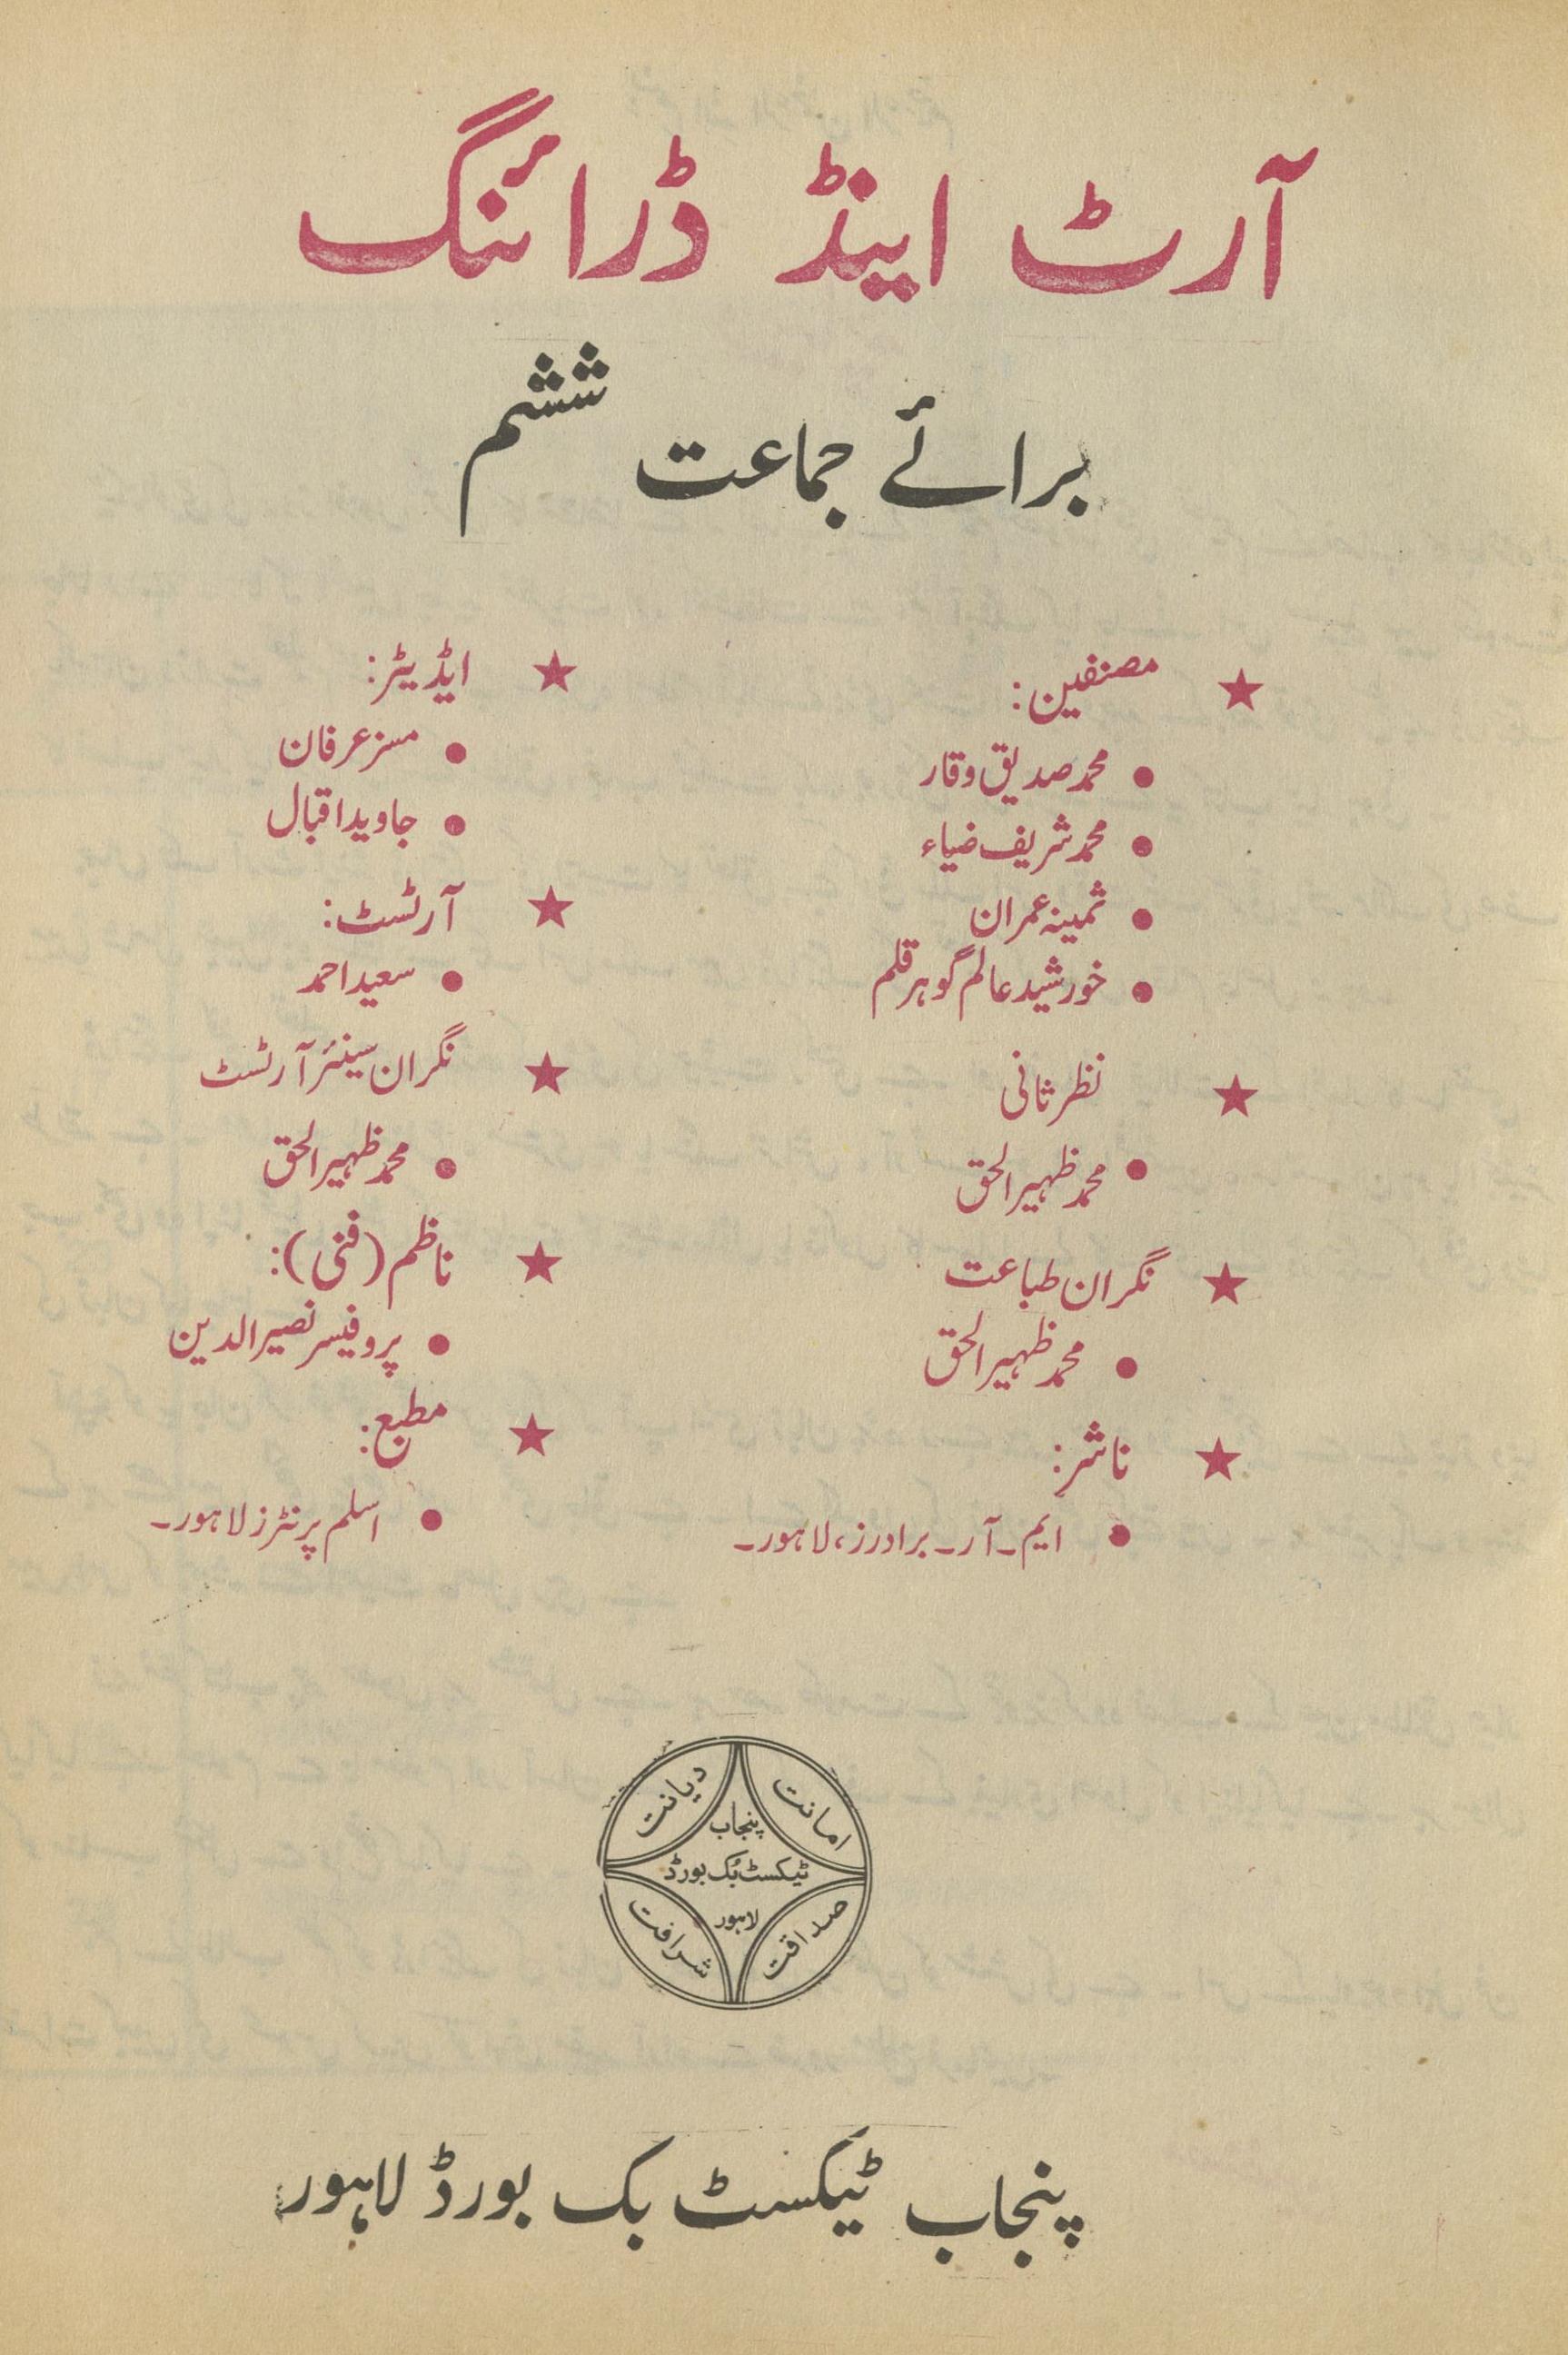 آرٹ اینڈ ڈرائنگ
برائے جماعت ششم
★ مصنفین:
● محمد صدیق وقار
● محمد شریف ضیاء
● ثمینہ عمران
● خورشید عالم گوہر قلم
★ نظر ثانی
● محمد ظہیر الحق
★ نگران طباعت
● محمد ظہیر الحق
★ ناشر:
● ایم۔ آر۔ برادرز، لاہور۔
★ ایڈیٹر:
● مسز عرفان
● جاوید اقبال
★ آرٹسٹ:
● سعید احمد
★ نگران سینئر آرٹسٹ
● محمد ظہیر الحق
★ ناظم (فنی):
● پروفیسر نصیر الدین
★ مطبع:
● اسلم پرنٹرز لاہور۔
امانت
دیانت
پنجاب
ٹیکسٹ بُک بورڈ
لاہور
صداقت
شرافت
پنجاب ٹیکسٹ بک بورڈ لاہور